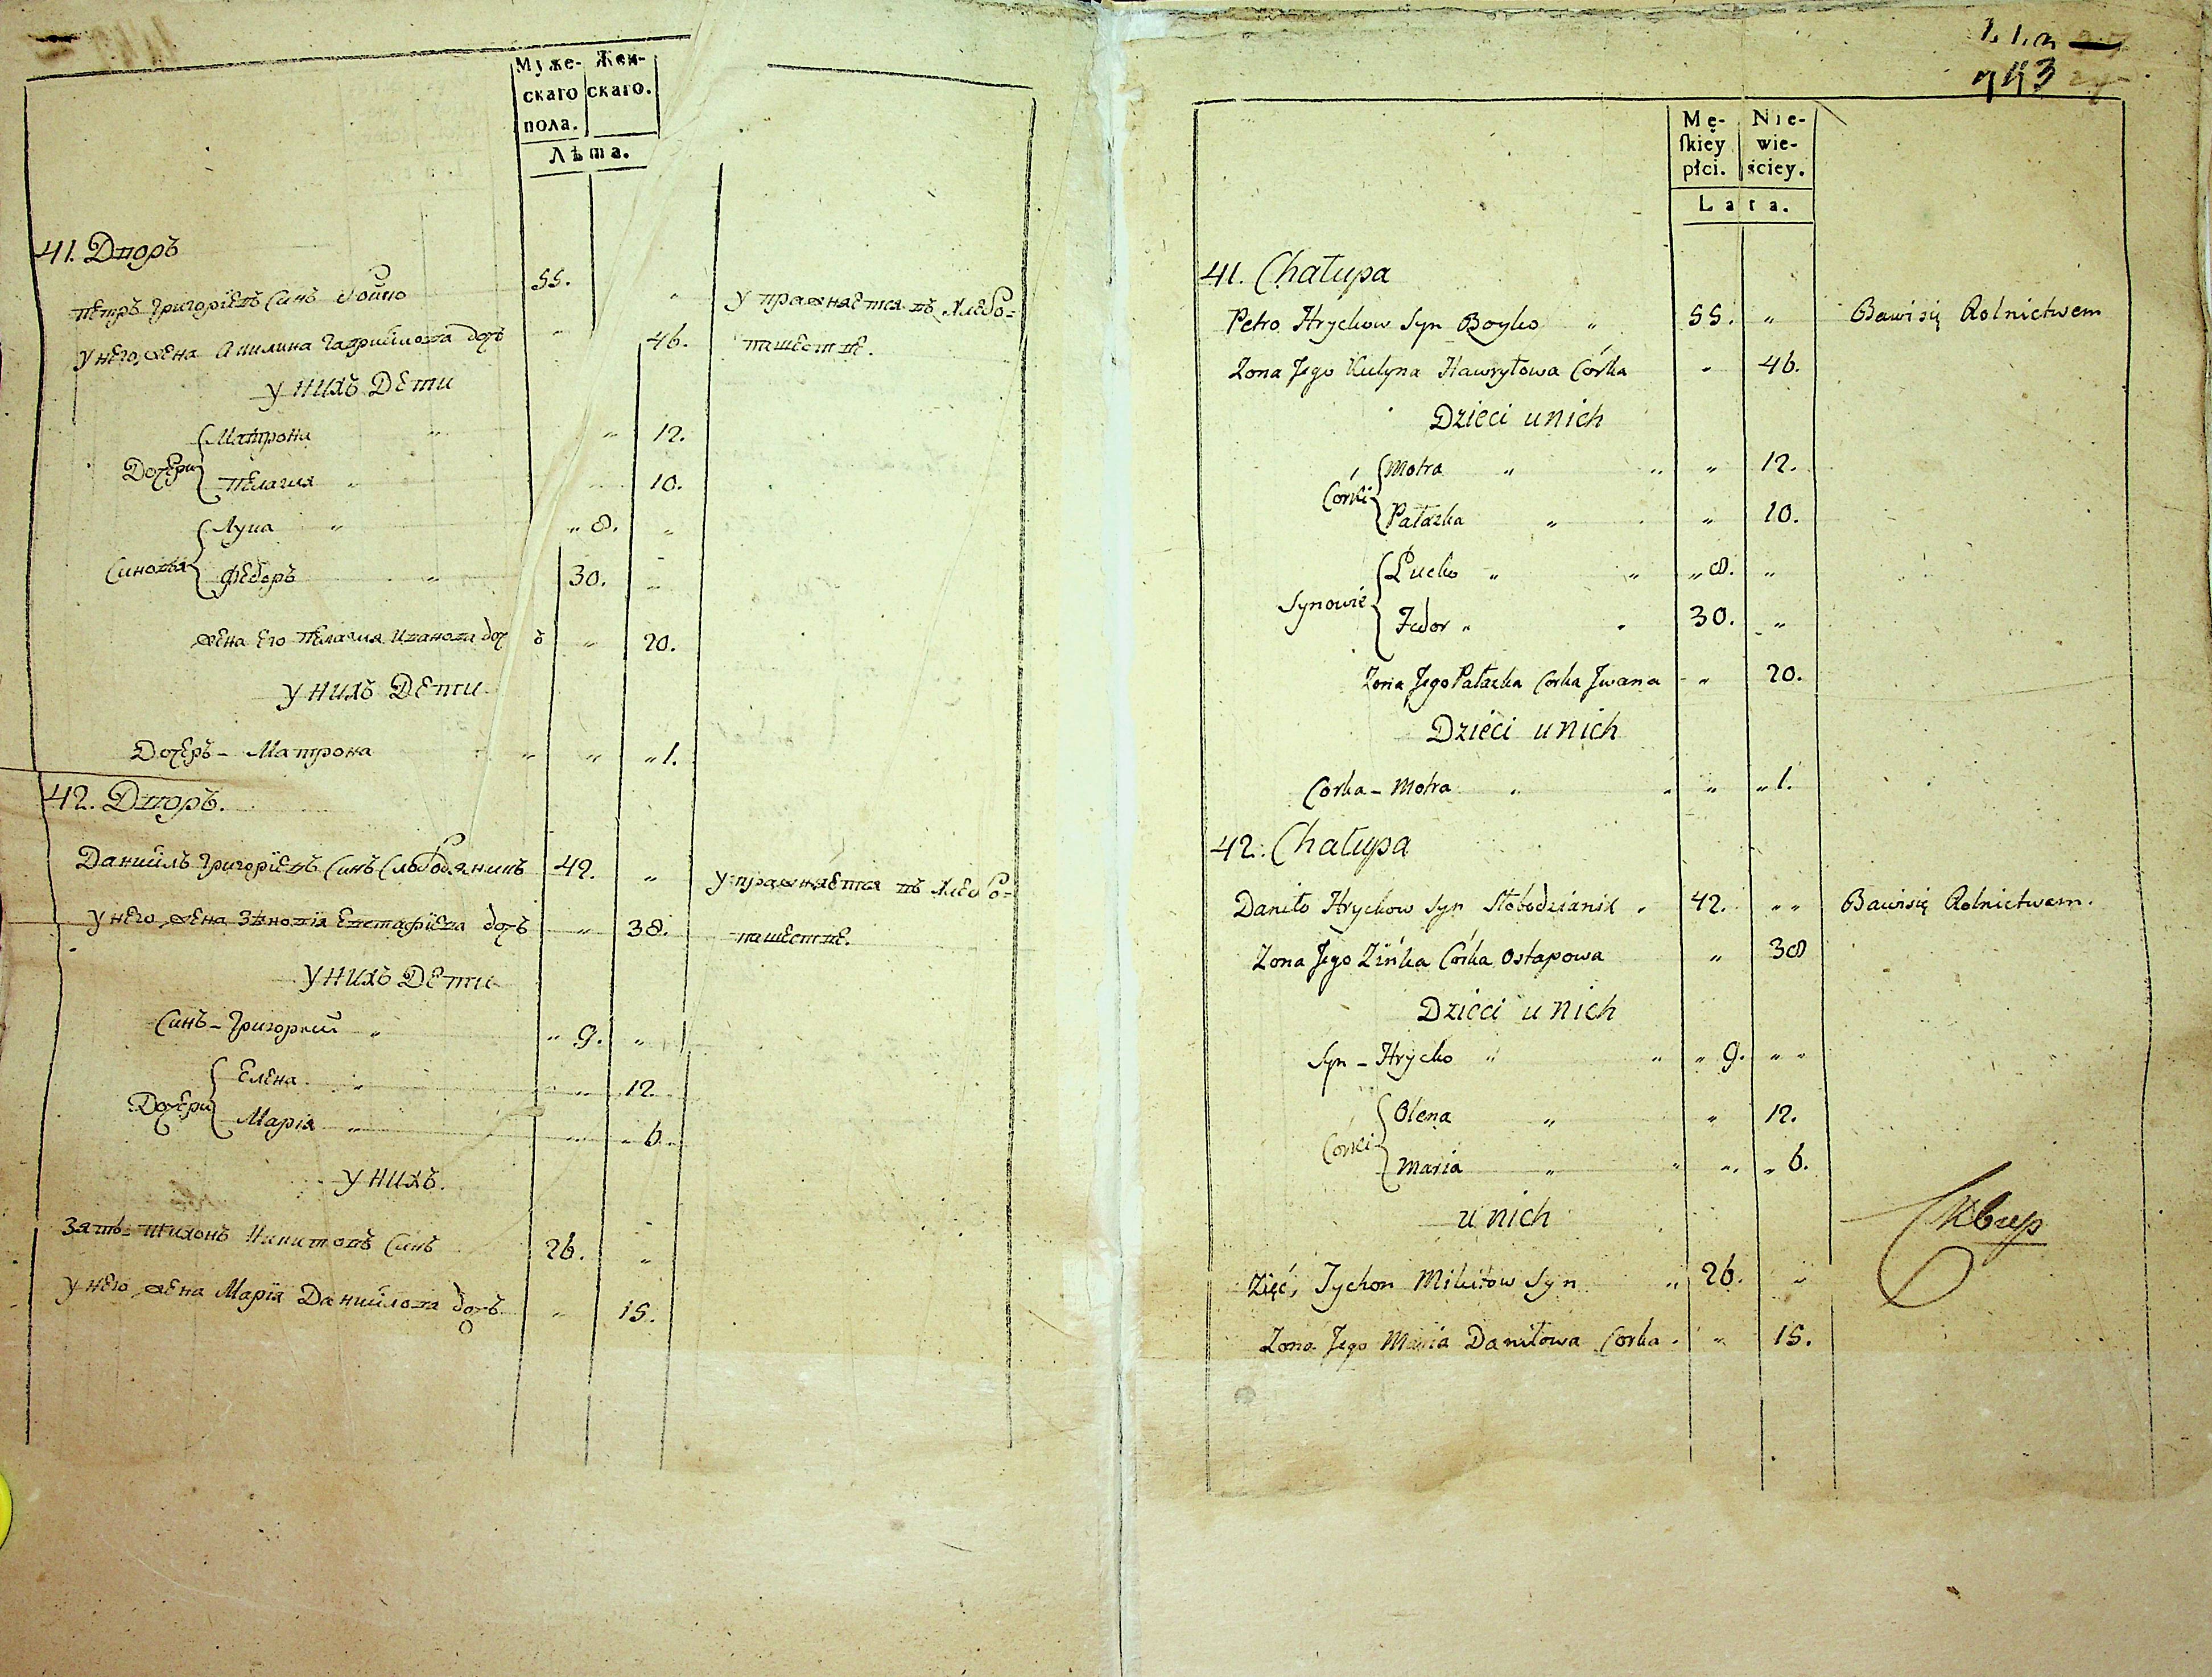 Муже- Жен-
скаго скаго.
пола.
Лѣта.
41. Дворъ
Петръ Григоріевъ Синъ Бойко 55. „ упражняется въ Хлебо=
у него жена Акилина Гавриилова дочь „ 46. пашестве.
у нихъ Дети
Дочери
Матрона „ „ 12.
Пелагия „ 10.
Синовья
Лука „ „ 8. „
Федоръ „ 30. „
жена Его Пелагия Иванова дочъ „ 20.
у нихъ Дети
Дочеръ - Матрона „ „ „ 1.
42. Дворъ.
Даниилъ Григоріевъ Синъ Слободяникъ 42. „ упражняется въ Хлебо=
у него жена Зѣновія Евстафіева дочъ „ 38. пашестве.
у нихъ Дети
Синъ - Григорий „ „ 9. „
Дочери
Елена „ „ 12.
Марія „ „ „ 6.
у нихъ.
Зять - Тихонъ Никитовъ Синъ 26. „
у него жена Марія Даниилова дочъ „ 15.
743
Mę- Nie-
ſkiey wie-
płci. ściey.
Lata.
41. Chałupa
Petro Hryckow Syn Boyko „ 55. „ Bawi się Rolnictwem
Zona Jego Kulyna Hawryłowa Córka „ 46.
Dzieci u nich
Córki
Motra „ „ „ 12.
Pałazka „ „ 10.
Synowie
Łucko „ „ „ 8. „
Fedor „ „ 30. „
Zona Jego Pałazka Corka Jwana „ 20.
Dzieci u nich
Corka - Motra „ „ „ „ 1.
42. Chałupa
Daniło Hryckow Syn Słobodzianik „ 42. „ „ Bawi się Rolnictwem.
Zona Jego Zińka Córka Ostapowa „ 38
Dzieci u nich
Syn - Hrycko „ „ „ 9. „ „
Córki
Olena „ „ 12.
Maria „ „ „ „ 6.
u nich
Zięć, Tychon Mikitow Syn „ 26. „
Zona Jego Maria Daniłowa Corka „ „ 15.